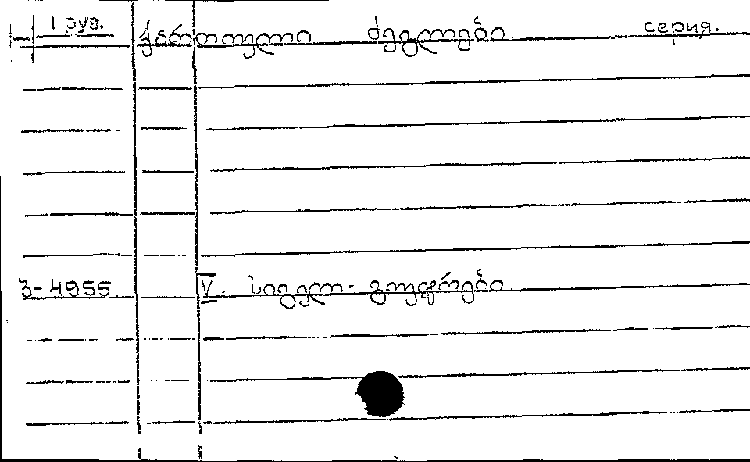 1 рув. ქართული ძეგლები серия.
3-4955 V. სიგელ-გუჯრები.